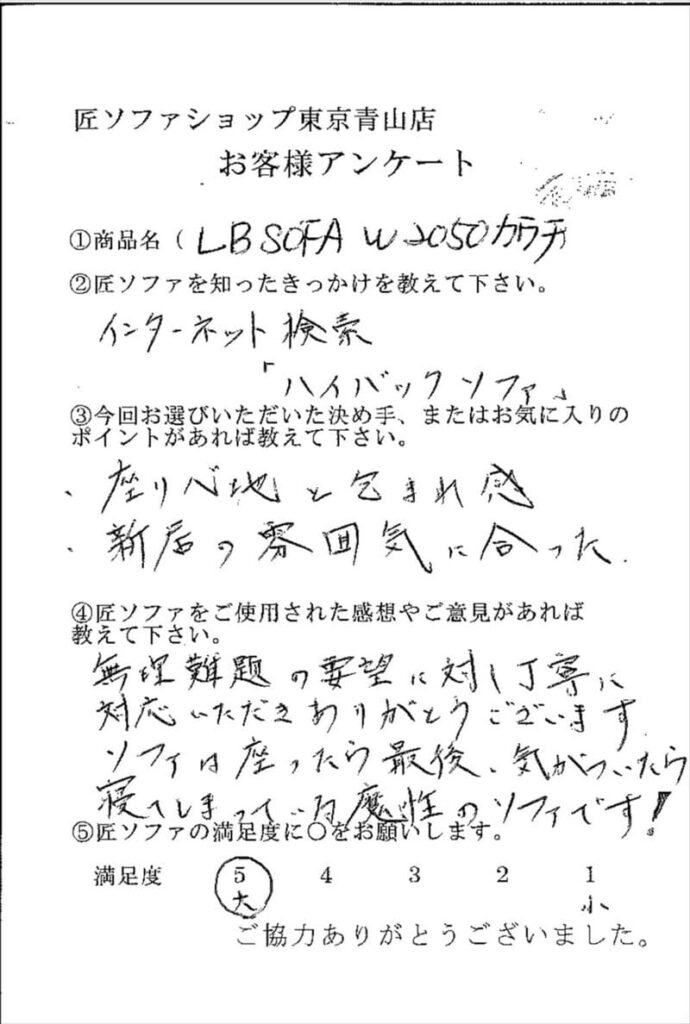 匠ソファショップ東京青山店
お客様アンケート
①商品名（ LB SOFA W2050カウチ
②匠ソファを知ったきっかけを教えて下さい。
インターネット検索
「ハイバックソファ」
③今回お選びいただいた決め手、またはお気に入りの
ポイントがあれば教えて下さい。
、座り心地と包まれ感
、新居の雰囲気に合った.
④匠ソファをご使用された感想やご意見があれば
教えて下さい。
無理難題の要望に対し丁寧に
対応いただきありがとうございます
ソファは座ったら最後、気がついたら
寝てしまっている魔性のソファです!
⑤匠ソファの満足度に○をお願いします。
満足度 5 4 3 2 1
大 小
ご協力ありがとうございました。